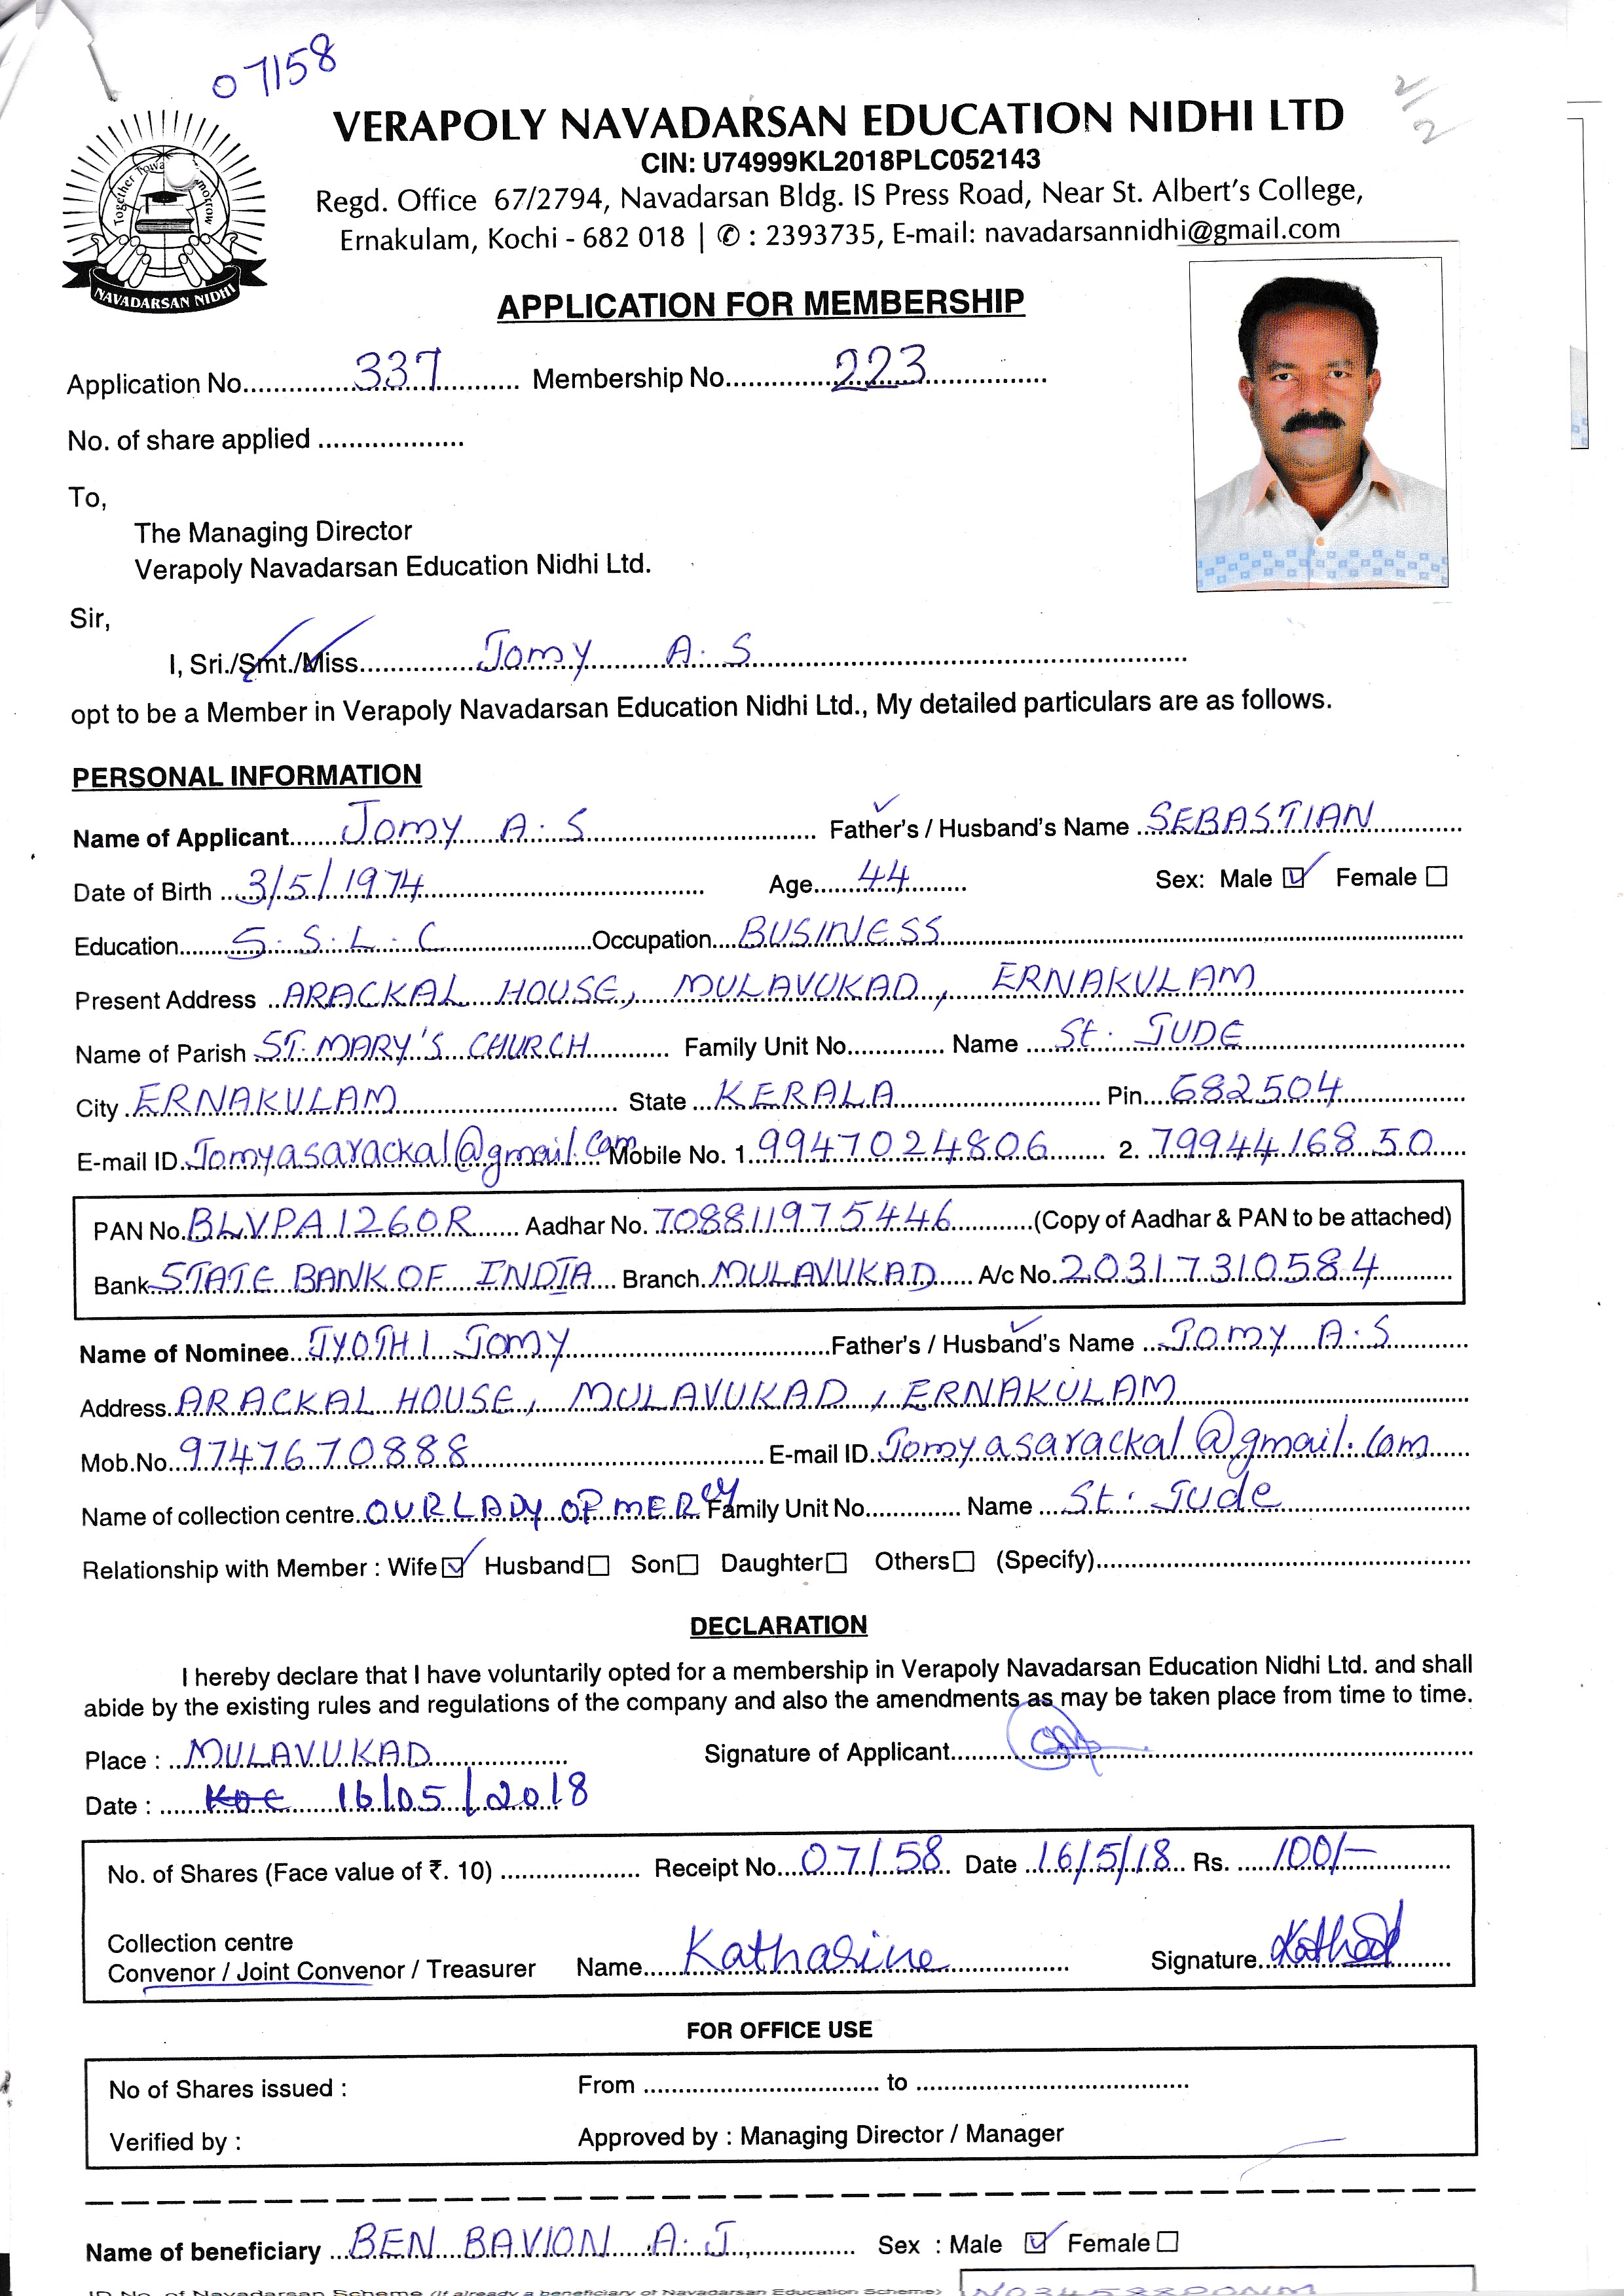 07158
2/2
VERAPOLY NAVADARSAN EDUCATION NIDHI LTD
CIN: U74999KL2018PLC052143
Regd. Office 67/2794, Navadarsan Bldg. IS Press Road, Near St. Albert's College,
Ernakulam, Kochi - 682 018 | ✆ : 2393735, E-mail: navadarsannidhi@gmail.com
NAVADARSAN NIDHI
APPLICATION FOR MEMBERSHIP
Application No. 337 Membership No. 223
No. of share applied
To,
The Managing Director
Verapoly Navadarsan Education Nidhi Ltd.
Sir,
I, Sri./Smt./Miss. Jomy A.S
opt to be a Member in Verapoly Navadarsan Education Nidhi Ltd., My detailed particulars are as follows.
PERSONAL INFORMATION
Name of Applicant Jomy A.S Father's / Husband's Name SEBASTIAN
Date of Birth 3/5/1974 Age 44 Sex: Male ☑ Female ☐
Education S.S.L.C Occupation BUSINESS
Present Address ARACKAL HOUSE, MULAVUKAD, ERNAKULAM
Name of Parish ST. MARY'S CHURCH Family Unit No. Name St. JUDE
City ERNAKULAM State KERALA Pin 682504
E-mail ID Jomyasarackal@gmail.com Mobile No. 1. 9947024806 2. 7994416850
PAN No. BLVPA1260R Aadhar No. 708811975446 (Copy of Aadhar & PAN to be attached)
Bank STATE BANK OF INDIA Branch MULAVUKAD A/c No. 20317310584
Name of Nominee JYOTHI Jomy Father's / Husband's Name Jomy A.S
Address ARACKAL HOUSE, MULAVUKAD, ERNAKULAM
Mob.No. 9747670888 E-mail ID Jomyasarackal@gmail.com
Name of collection centre OUR LADY OF MERCY Family Unit No. Name St. Jude
Relationship with Member : Wife ☑ Husband ☐ Son ☐ Daughter ☐ Others ☐ (Specify)
DECLARATION
I hereby declare that I have voluntarily opted for a membership in Verapoly Navadarsan Education Nidhi Ltd. and shall
abide by the existing rules and regulations of the company and also the amendments as may be taken place from time to time.
Place : MULAVUKAD Signature of Applicant
Date : KOC 16/05/2018
No. of Shares (Face value of ₹. 10) Receipt No. 07158 Date 16/5/18 Rs. 100/-
Collection centre
Convenor / Joint Convenor / Treasurer Name Katharine Signature
FOR OFFICE USE
No of Shares issued : From to
Verified by : Approved by : Managing Director / Manager
Name of beneficiary BEN BAVION A.J Sex : Male ☑ Female ☐
ID No. of Navadarsan Scheme (If already a beneficiary of Navadarsan Education Scheme)